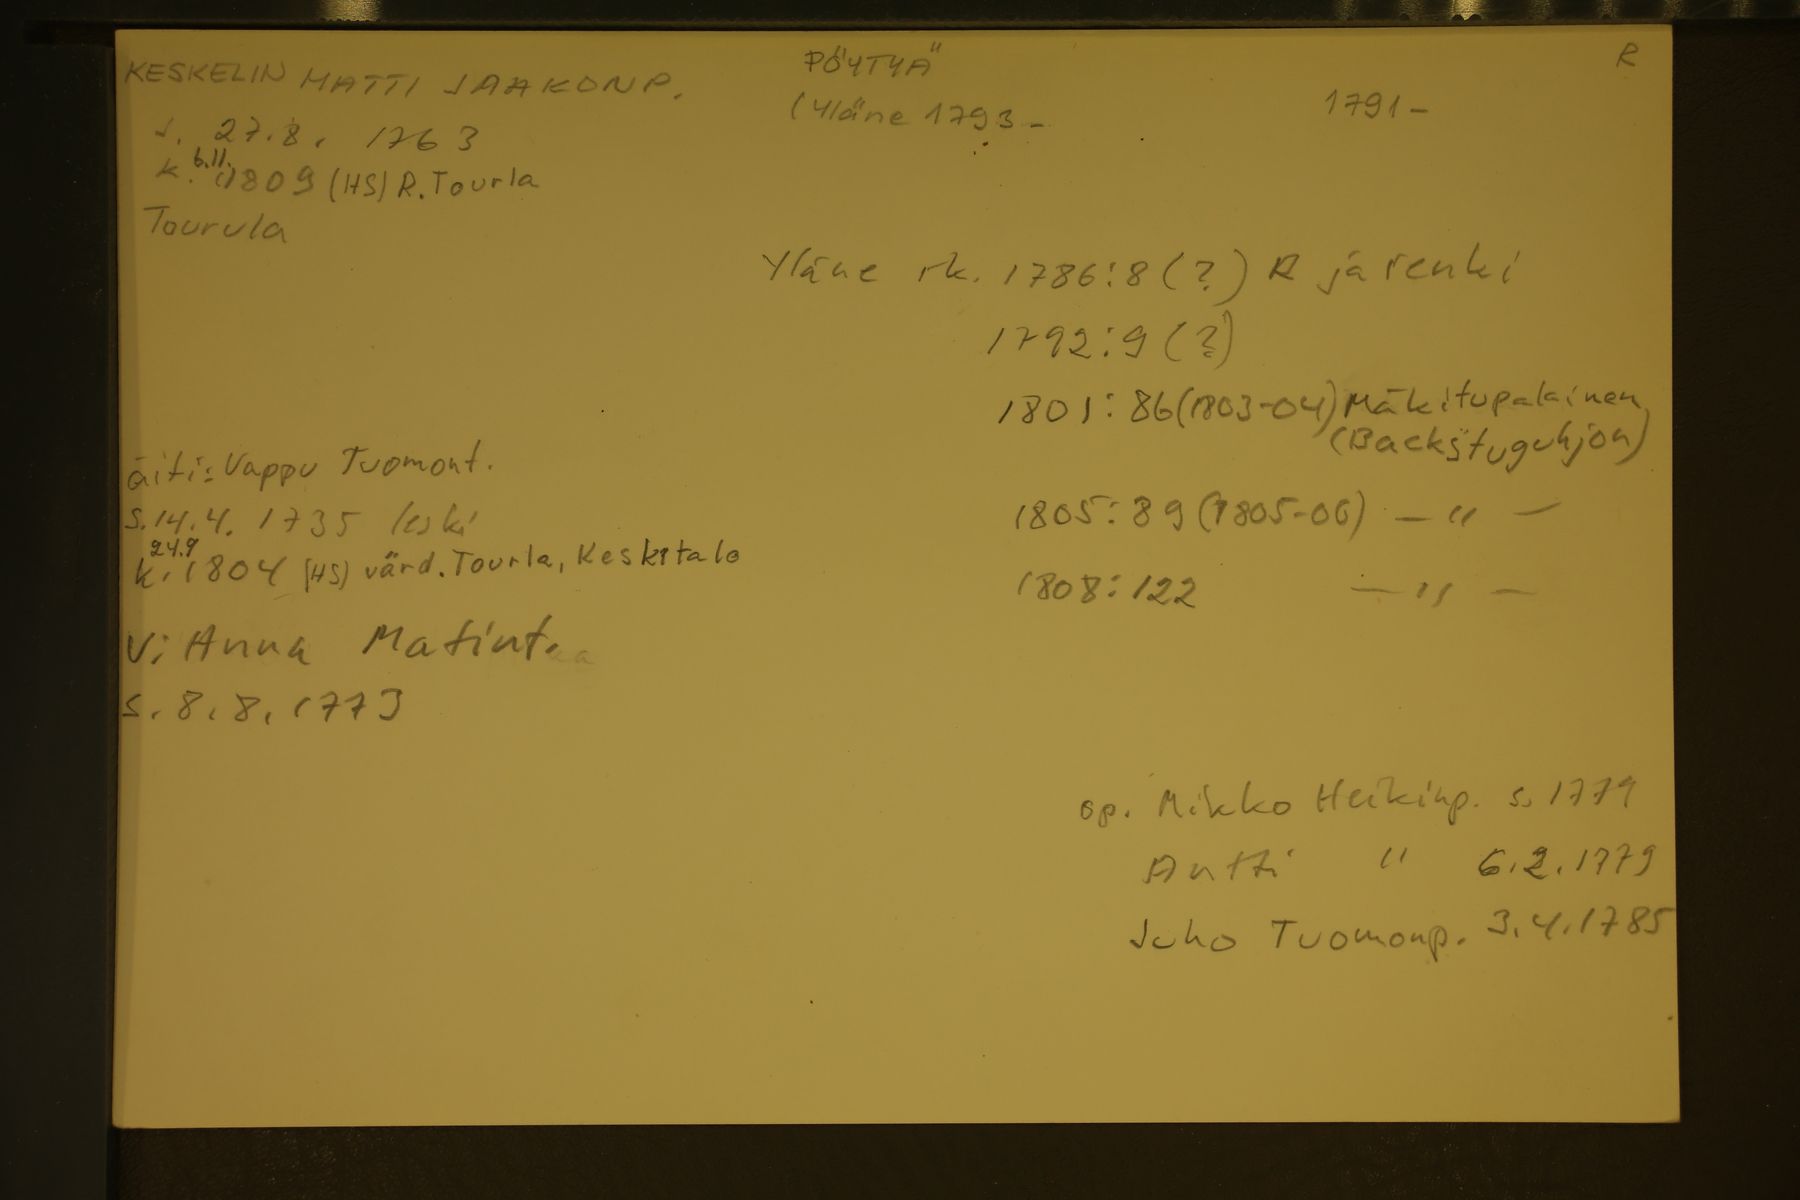 KESKELIN MATTI JAAKONP. PÖYTYÄ R
(Yläne 1793- 1791-
s. 27.8. 1763
k. 6.11. 1809 (HS) R. Tourla
Tourula
Yläne rk. 1786:8 (?) R ja renki
1792:9 (?)
1801: 86 (1803-04) Mäkitupalainen
(Backstuguhjon)
äiti: Vappu Tuomont.
s. 14.4. 1735 leski
1805: 89 (1805-06) — " —
24.9
k. 1804 (HS) värd. Tourla, Keskitalo
1808: 122 — " —
V: Anna Matint.
s. 8.8. 1773
op. Mikko Heikinp. s. 1779
Antti " 6.2.1779
Juho Tuomonp. 3.4.1785